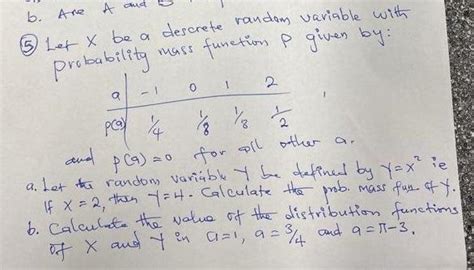 b. Are A and B
⑤ Let X be a descrete random variable with
probability mass function P given by:
a | -1 0 1 2
p(a) 1/4 1/8 1/8 1/2
and p(a) = 0 for all other a.
a. Let the random variable Y be defined by Y = X² ie
If X = 2, then Y = 4. Calculate the prob. mass fun of Y.
b. Calculate the value of the distribution functions
of X and Y in a = 1, a = 3/4 and a = π - 3.